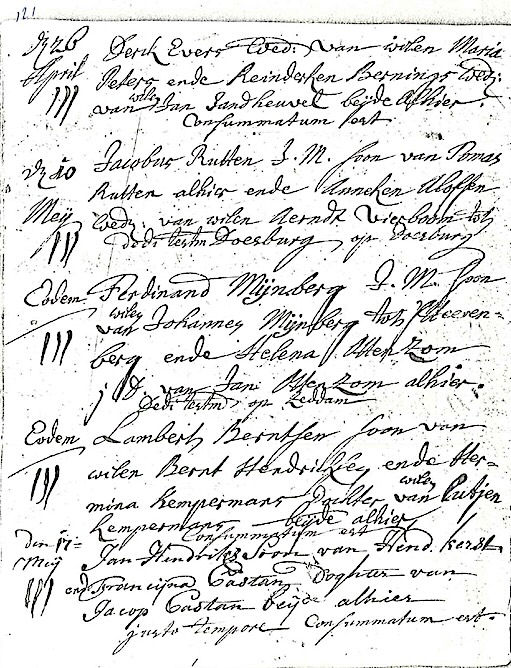 121
Dẽ 26 Derck Evers Wed: van wilen Maria
April Peters ende Reindersken Bernings Wed:
van wilen Jan Zandheuvel beijde Alhier.
Consummatum est
Dẽ 10 Jacobus Rutten J. M. Soon van Tomas
Rutten alhier ende Anneken Aloffen
Meij Wed: van wilen Aerndt Vierboom tot
Doesburg op Doesburg
Eodem Ferdinand Mijnsberg J. M. Soon
van wilen Johannes Mijnsberg tot
berg ende Helena Otten Zom
j D. van Jan Otten Zom alhier.
Dedi testm op Zeddam
Eodem Lambert Berntsen Soon van
wilen Bernt Hendricksen ende Her-
mina Kempermans Dochter van wilen Lubjen
Kempermans beijde alhier
Consummatum est
Den 17= Jan Hendriks Soon van Hend. Kerst
Meij ende Francijna Castan Doghter van
Jacop Castan beijde alhier
justo tempore Consummatum est.